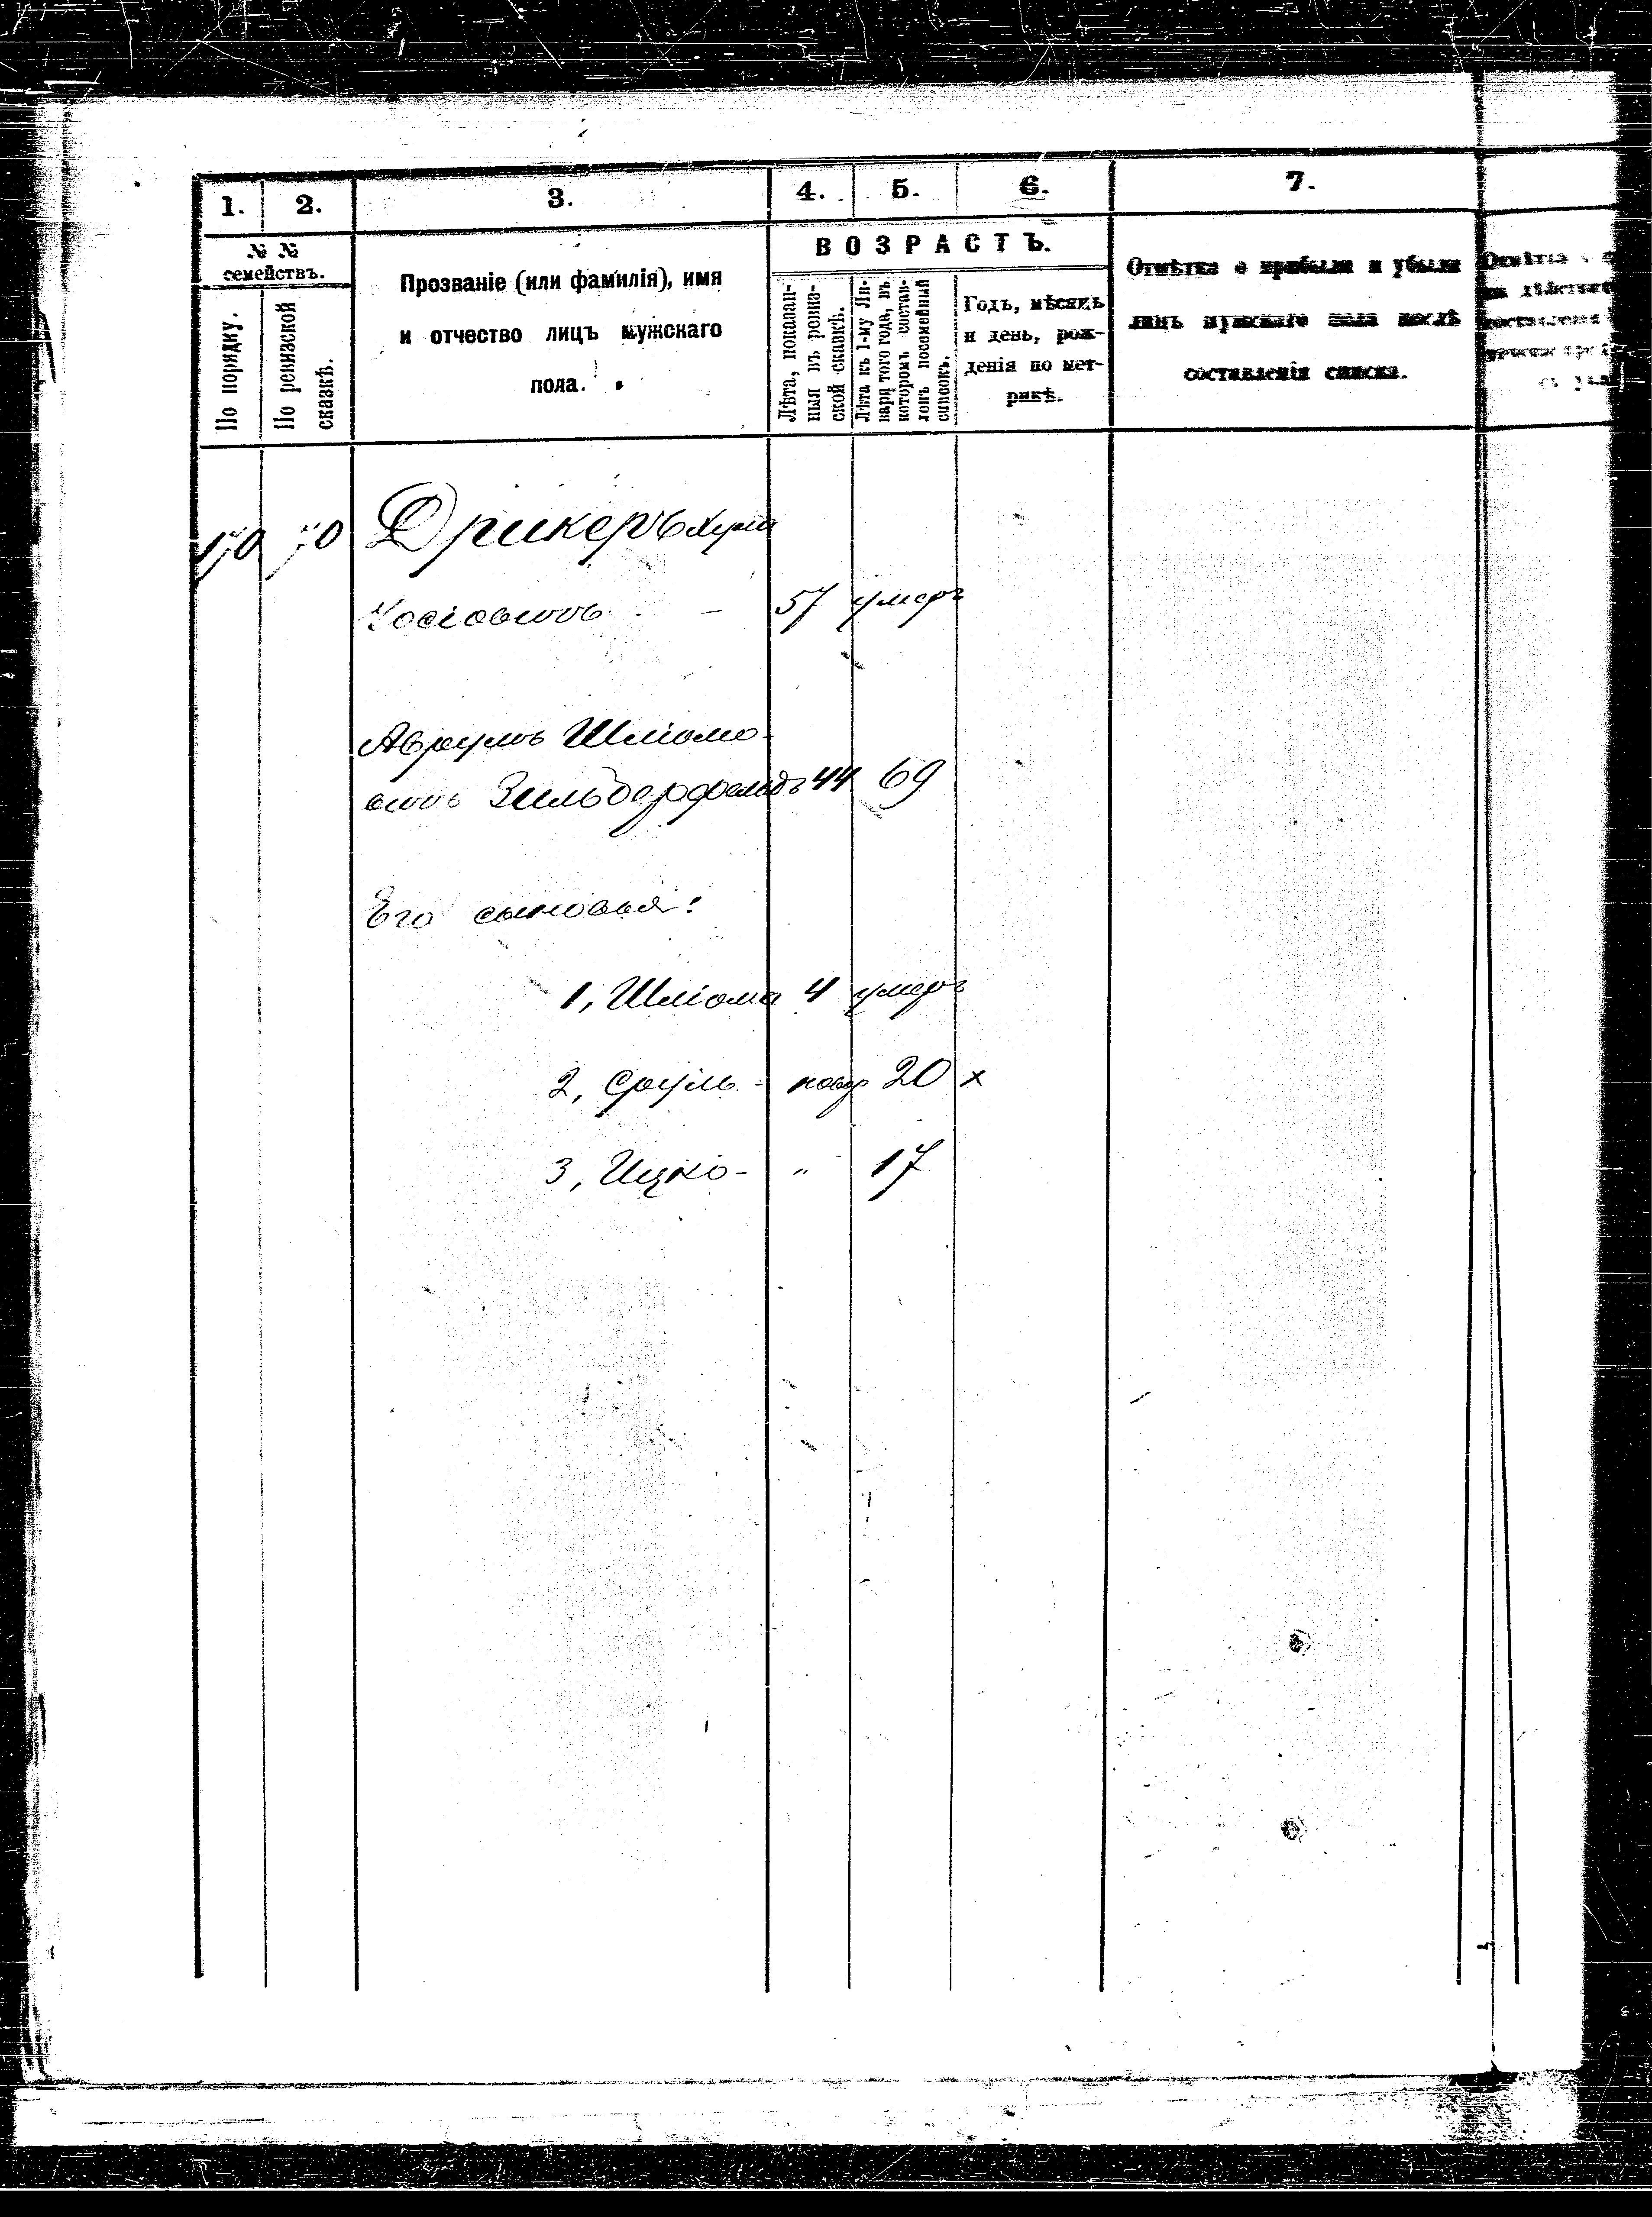 1. 2. 3. 4. 5. 6. 7.
№ № семействъ.
По порядку.
По ревизской сказкѣ.
Прозваніе (или фамилія), имя
и отчество лицъ мужскаго
пола.
ВОЗРАСТЪ.
Лѣта, показан-
ныя въ ревиз-
ской сказкѣ.
Лѣта къ 1-му Ян-
варя того года, въ
которомъ состав-
ленъ посемейный
списокъ.
Годъ, мѣсяцъ
и день, рож-
денія по мет-
рикѣ.
Отмѣтка о прибыли и убыли
лицъ мужскаго пола послѣ
составленія списка.
Дрикеръ
57 умеръ
Аврумъ Шліомо-
вичъ Зильберфельдъ 44 69
Его сыновья:
1, Шліома 4 умеръ
2, Сруль - новор 20 х
3, Ицко - " 17